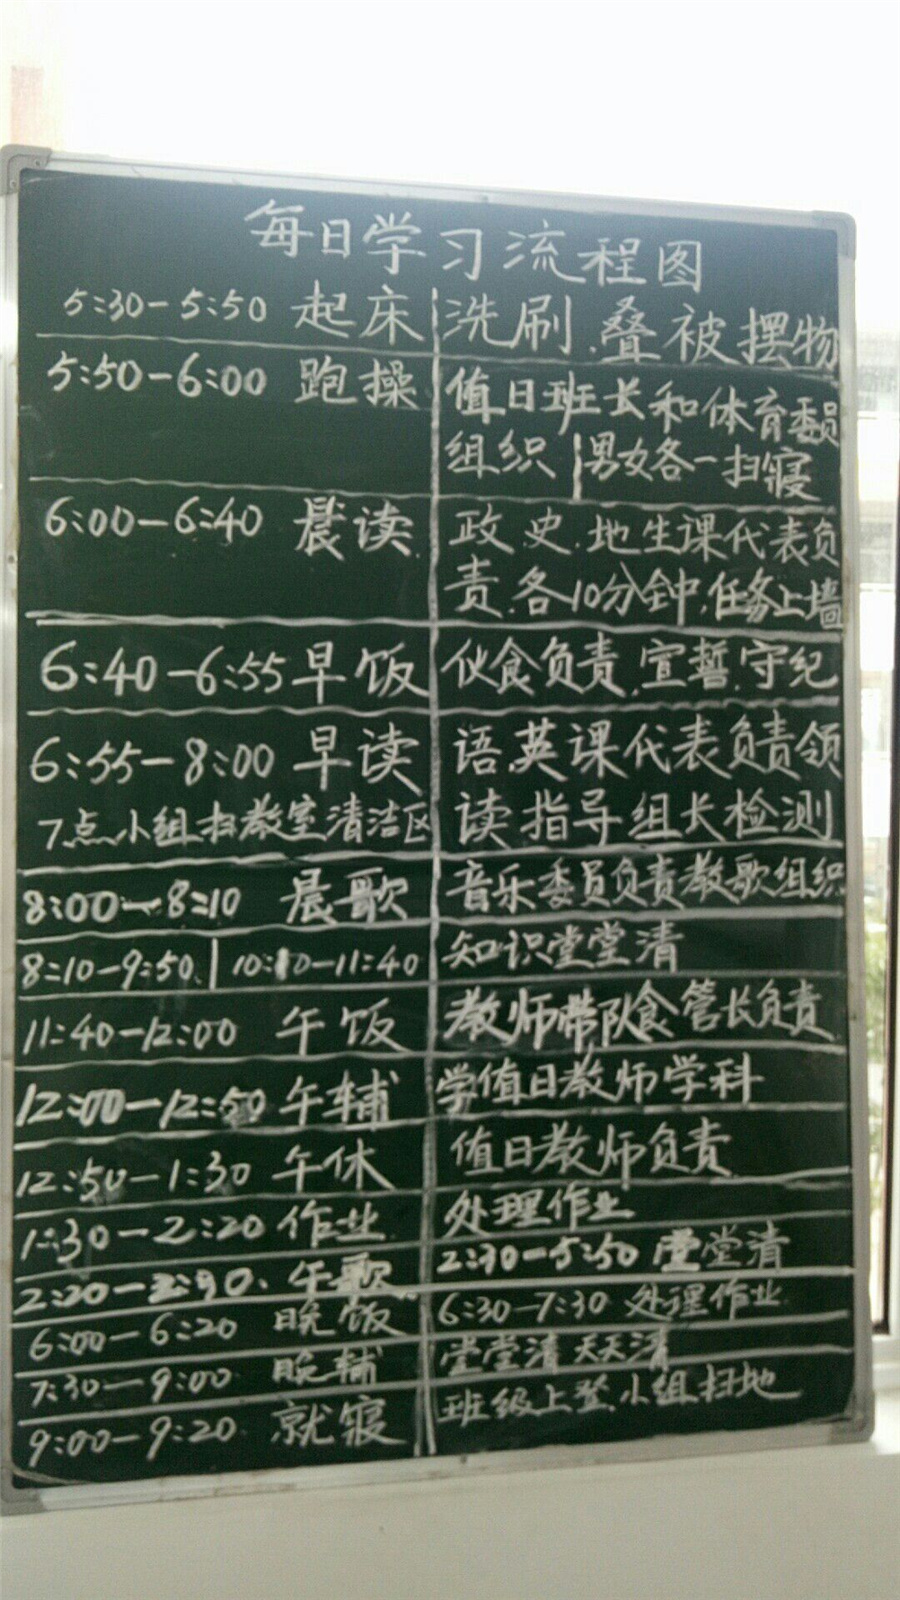 每日学习流程图
5:30-5:50 起床 洗刷.叠被摆物
5:50-6:00 跑操 值日班长和体育委员
组织 男女各一扫寝
6:00-6:40 晨读 政史.地生课代表负
责.各10分钟.任务上墙
6:40-6:55 早饭 伙食负责.宣誓.守纪
6:55-8:00 早读 语.英课代表负责领
7点小组扫教室清洁区 读指导组长检测
8:00-8:10 晨歌 音乐委员负责教歌组织
8:10-9:50 10:10-11:40 知识堂堂清
11:40-12:00 午饭 教师带队食管长负责
12:00-12:50 午辅 学值日教师学科
12:50-1:30 午休 值日教师负责
1:30-2:20 作业 处理作业
2:20-2:30. 午歌 2:30-5:50 堂堂清
6:00-6:20 晚饭 6:30-7:30 处理作业
7:30-9:00 晚辅 堂堂清天天清
9:00-9:20. 就寝 班级上堂.小组扫地